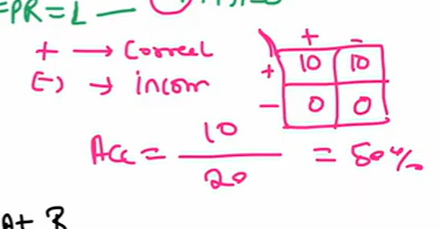 FPR = L —
+ → Correct
(-) → incorr
+ -
+ 10 10
- 0 0
Acc = 10 / 20 = 50%
At B